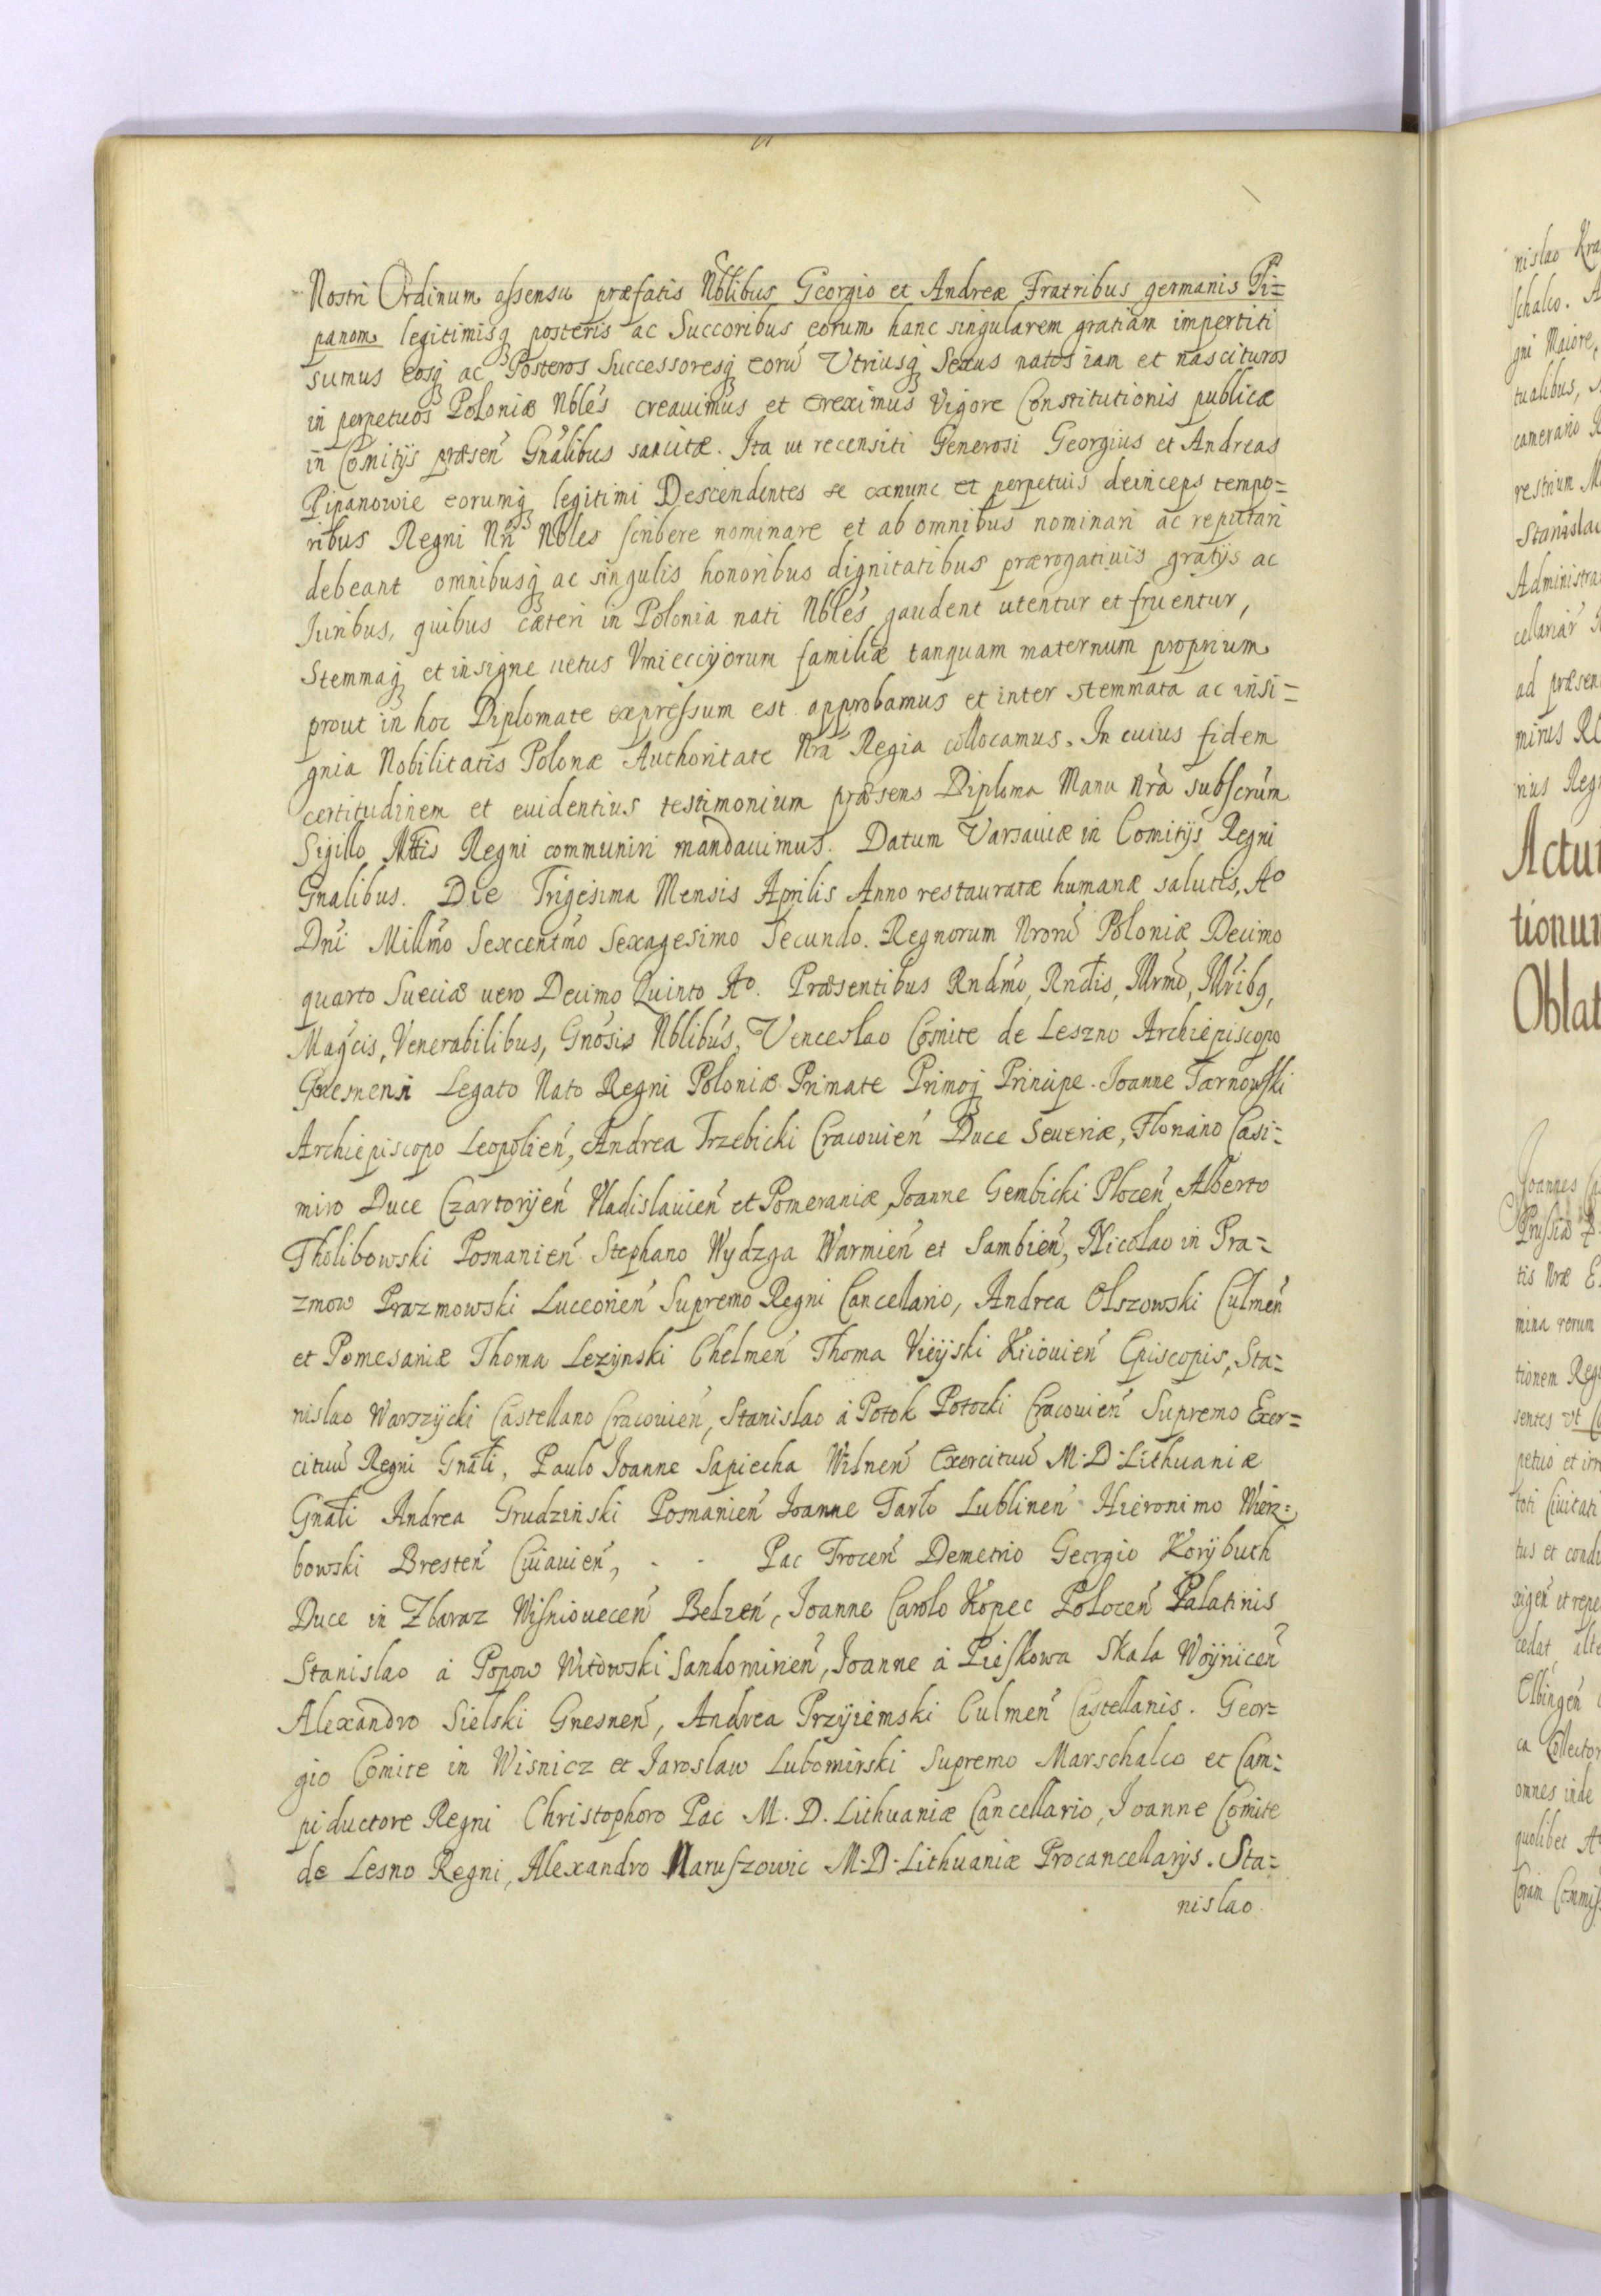 Nostri Ordinum assensu præfatis Nblibus Georgio et Andreæ Fratribus germanis Pi=
panom legitimisq posteris ac Succoribus eorum hanc singularem gratiam impertiti
sumus eosq ac Posteros Successoresq eorū Utriusq Sexus natos iam et nascituros
in perpetuos Poloniæ Nbles creauimus et ereximus Vigore Constitutionis publicæ
in Comitijs præsen Gnalibus sancitæ. Ita ut recensiti Generosi Georgius et Andreas
Pipanowie eorumq legitimi Descendentes se exnunc et perpetuis deinceps tempo=
ribus Regni Nri Nbles scribere nominare et ab omnibus nominari ac reputari
debeant omnibusq ac singulis honoribus dignitatibus prærogatiuis gratijs ac
Iuribus, quibus cæteri in Polonia nati Nbles gaudent utentur et fruentur,
Stemmaq et insigne uetus Vmieccijorum familiæ tanquam maternum proprium
prout in hoc Diplomate expressum est approbamus et inter stemmata ac insi=
gnia Nobilitatis Polonæ Authoritate Nra Regia collocamus. In cuius fidem
certitudinem et euidentius testimonium præsens Diploma Manu Nra subscrum
Sigillo Regni communiri mandauimus. Datum Varsauiæ in Comitijs Regni
Gnalibus. Die Trigesima Mensis Aprilis Anno restauratæ humanæ salutis, Ao
Dni Millmo Sexcentmo Sexagesimo Secundo. Regnorum Nrorū Poloniæ Decimo
quarto Sueciæ uero Decimo Quinto Ao. Præsentibus Rndmo, Rndis, Illrmo, Illribq,
Magcis, Venerabilibus, Gnosis Nblibus, Venceslao Comite de Leszno Archiepiscopo
Gnesnensi Legato Nato Regni Poloniæ Primate Primoq Principe. Ioanne Tarnowski
Archiepiscopo Leopolien, Andrea Trzebicki Cracouien Duce Seueriæ, Floriano Casi=
miro Duce Czartorijen Vladislauien et Pomeraniæ, Ioanne Gembicki Plocen, Alberto
Tholibowski Posnanien Stephano Wydzga Warmien et Sambien, Nicolao in Pra=
zmow Prazmowski Luceorien Supremo Regni Cancellario, Andrea Olszowski Culmen
et Pomesaniæ Thoma Lezijnski Chelmen Thoma Vieijski Kiiouien Episcopis, Sta=
nislao Warszijcki Castellano Cracouien, Stanislao à Potok Potocki Cracouien Supremo Exer=
cituū Regni Gnali, Paulo Ioanne Sapiecha Wilnen Exercituū M. D. Lithuaniæ
Gnali Andrea Grudziński Posnanien Ioanne Tarło Lublinen Hieronimo Wierz=
bowski Bresten Cuiauien, - - Pac Trocen Demetrio Georgio Korijbuth
Duce in Zbaraz Wisniouecen Belzen, Ioanne Carolo Kopec Polocen Palatinis
Stanislao à Popow Witowski Sandomirien, Ioanne à Pieskowa Skala Woijnicen
Alexandro Sielski Gnesnen, Andrea Przijiemski Culmen Castellanis. Geor=
gio Comite in Wisnicz et Iaroslaw Lubomirski Supremo Marschalco et Cam=
piductore Regni Christophoro Pac M. D. Lithuaniæ Cancellario, Ioanne Comite
de Lesno Regni, Alexandro Naruszowic M. D. Lithuaniæ Procancellarijs. Sta=
nislao
nislao Kra
schalco. A
gni Maiore,
tualibus,
camerario
Stanislau
Administra
ad præsen
rius Reg
Actu
tionum
Oblat
Joannes
tis Nræ E
mina rerum
tionem Reg
sentes ut
petuo et irr
tori Ciuitati
tus et cond
Elbingen
ca Collector
omnes inde
quolibet A
Coram Commiss